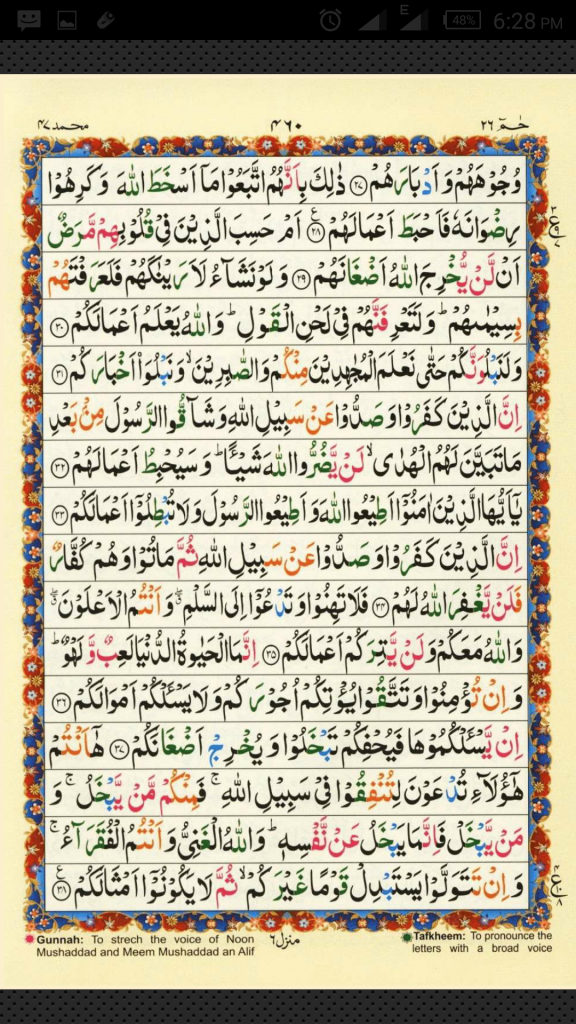 48% 6:28 PM
E
محمد ۴۷ ۴۶۰ حٰمٓ ۲۶
وُجُوْهَهُمْ وَ اَدْبَارَهُمْ ﴿۲۷﴾ ذٰلِكَ بِاَنَّهُمُ اتَّبَعُوْا مَاۤ اَسْخَطَ اللّٰهَ وَ كَرِهُوْا
رِضْوَانَهٗ فَاَحْبَطَ اَعْمَالَهُمْ ﴿۲۸﴾ اَمْ حَسِبَ الَّذِيْنَ فِيْ قُلُوْبِهِمْ مَّرَضٌ
اَنْ لَّنْ يُّخْرِجَ اللّٰهُ اَضْغَانَهُمْ ﴿۲۹﴾ وَ لَوْ نَشَآءُ لَاَرَيْنٰكَهُمْ فَلَعَرَفْتَهُمْ
بِسِيْمٰىهُمْ ؕ وَ لَتَعْرِفَنَّهُمْ فِيْ لَحْنِ الْقَوْلِ ؕ وَ اللّٰهُ يَعْلَمُ اَعْمَالَكُمْ ﴿۳۰﴾
وَ لَنَبْلُوَنَّكُمْ حَتّٰى نَعْلَمَ الْمُجٰهِدِيْنَ مِنْكُمْ وَ الصّٰبِرِيْنَ ۙ وَ نَبْلُوَا۟ اَخْبَارَكُمْ ﴿۳۱﴾
اِنَّ الَّذِيْنَ كَفَرُوْا وَ صَدُّوْا عَنْ سَبِيْلِ اللّٰهِ وَ شَآقُّوا الرَّسُوْلَ مِنْۢ بَعْدِ
مَا تَبَيَّنَ لَهُمُ الْهُدٰى ۙ لَنْ يَّضُرُّوا اللّٰهَ شَيْـًٔا ؕ وَ سَيُحْبِطُ اَعْمَالَهُمْ ﴿۳۲﴾
يٰۤاَيُّهَا الَّذِيْنَ اٰمَنُوْۤا اَطِيْعُوا اللّٰهَ وَ اَطِيْعُوا الرَّسُوْلَ وَ لَا تُبْطِلُوْۤا اَعْمَالَكُمْ ﴿۳۳﴾
اِنَّ الَّذِيْنَ كَفَرُوْا وَ صَدُّوْا عَنْ سَبِيْلِ اللّٰهِ ثُمَّ مَاتُوْا وَ هُمْ كُفَّارٌ
فَلَنْ يَّغْفِرَ اللّٰهُ لَهُمْ ﴿۳۴﴾ فَلَا تَهِنُوْا وَ تَدْعُوْۤا اِلَى السَّلْمِ ۖ وَ اَنْتُمُ الْاَعْلَوْنَ ۖ
وَ اللّٰهُ مَعَكُمْ وَ لَنْ يَّتِرَكُمْ اَعْمَالَكُمْ ﴿۳۵﴾ اِنَّمَا الْحَيٰوةُ الدُّنْيَا لَعِبٌ وَّ لَهْوٌ ؕ
وَ اِنْ تُؤْمِنُوْا وَ تَتَّقُوْا يُؤْتِكُمْ اُجُوْرَكُمْ وَ لَا يَسْـَٔلْكُمْ اَمْوَالَكُمْ ﴿۳۶﴾
اِنْ يَّسْـَٔلْكُمُوْهَا فَيُحْفِكُمْ تَبْخَلُوْا وَ يُخْرِجْ اَضْغَانَكُمْ ﴿۳۷﴾ هٰۤاَنْتُمْ
هٰۤؤُلَآءِ تُدْعَوْنَ لِتُنْفِقُوْا فِيْ سَبِيْلِ اللّٰهِ ۚ فَمِنْكُمْ مَّنْ يَّبْخَلُ ۚ وَ
مَنْ يَّبْخَلْ فَاِنَّمَا يَبْخَلُ عَنْ نَّفْسِهٖ ؕ وَ اللّٰهُ الْغَنِيُّ وَ اَنْتُمُ الْفُقَرَآءُ ۚ
وَ اِنْ تَتَوَلَّوْا يَسْتَبْدِلْ قَوْمًا غَيْرَكُمْ ۙ ثُمَّ لَا يَكُوْنُوْۤا اَمْثَالَكُمْ ﴿۳۸﴾
Gunnah: To strech the voice of Noon
Mushaddad and Meem Mushaddad an Alif
منزل ۶
Tafkheem: To pronounce the
letters with a broad voice